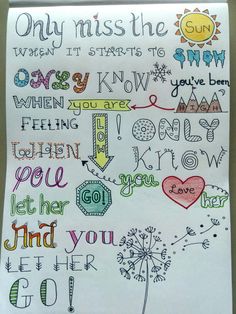 Only miss the SUN
WHEN IT STARTS TO SNOW
ONLY KNOW you've been
WHEN you are HIGH
FEELING LOW! ONLY
WHEN KNOW
you you Love her
let her GO!
And you
LET HER
GO!